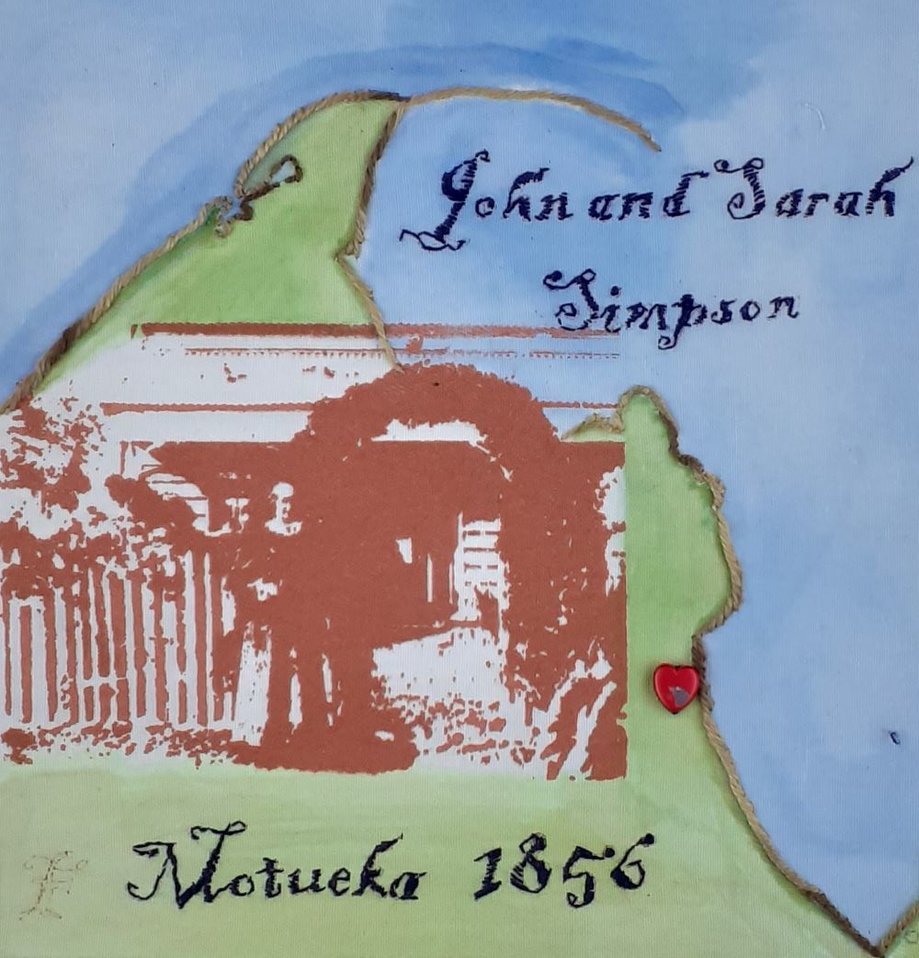 John and Sarah
Simpson
Motueka 1856